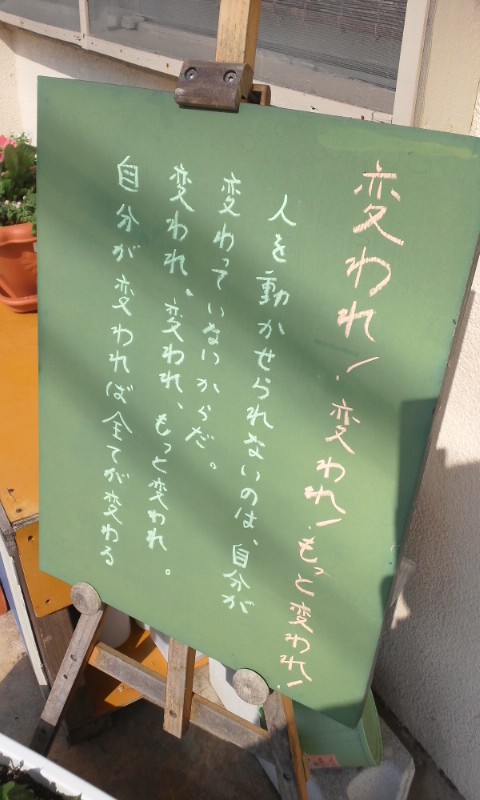 変われ！変われ！もっと変われ！
人を動かせられないのは、自分が
変わっていないからだ。
変われ。変われ、もっと変われ。
自分が変われば全てが変わる